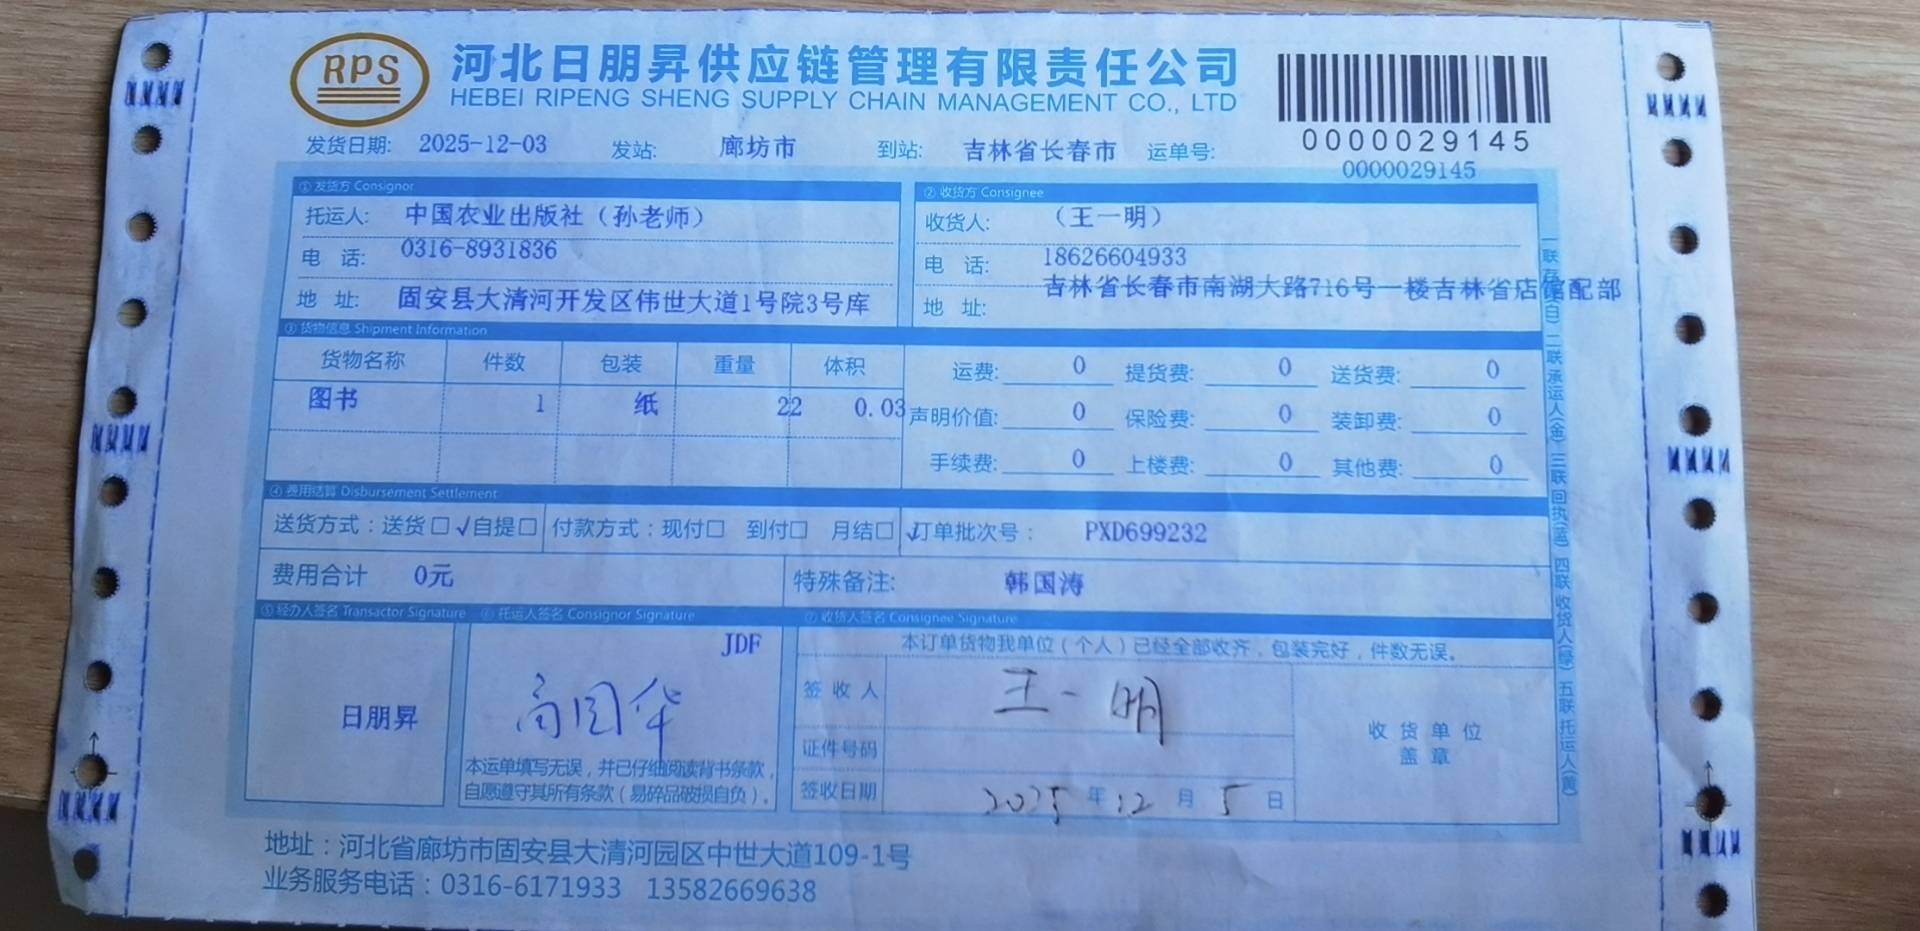 RPS 河北日朋昇供应链管理有限责任公司
HEBEI RIPENG SHENG SUPPLY CHAIN MANAGEMENT CO., LTD
0000029145
发货日期: 2025-12-03 发站: 廊坊市 到站: 吉林省长春市 运单号: 0000029145
① 发货方 Consignor ② 收货方 Consignee
托运人: 中国农业出版社（孙老师） 收货人: （王一明）
电 话: 0316-8931836 电 话: 18626604933
地 址: 固安县大清河开发区伟世大道1号院3号库 地 址: 吉林省长春市南湖大路716号一楼吉林省店馆配部
③ 货物信息 Shipment Information
货物名称 件数 包装 重量 体积 运费: 0 提货费: 0 送货费: 0
图书 1 纸 22 0.03 声明价值: 0 保险费: 0 装卸费: 0
手续费: 0 上楼费: 0 其他费: 0
④ 费用结算 Disbursement Settlement
送货方式：送货□ √自提□ 付款方式：现付□ 到付□ 月结□ √订单批次号： PXD699232
费用合计 0元 特殊备注: 韩国涛
⑤ 经办人签名 Transactor Signature ⑥ 托运人签名 Consignor Signature ⑦ 收货人签名 Consignee Signature
JDF 本订单货物我单位（个人）已经全部收齐，包装完好，件数无误。
日朋昇
签收人 王一明
证件号码
签收日期 2025 年 12 月 5 日
收货单位
盖章
本运单填写无误，并已仔细阅读背书条款，
自愿遵守其所有条款（易碎品破损自负）。
二联 承运人(金) 三联 回执(蓝) 四联 收货人(绿) 五联 托运人(黄)
地址：河北省廊坊市固安县大清河园区中世大道109-1号
业务服务电话：0316-6171933 13582669638